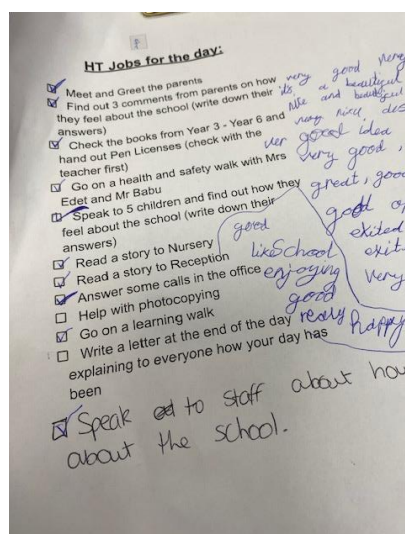 HT Jobs for the day:
Meet and Greet the parents
Find out 3 comments from parents on how
they feel about the school (write down their
answers)
Check the books from Year 3 - Year 6 and
hand out Pen Licenses (check with the
teacher first)
Go on a health and safety walk with Mrs
Edet and Mr Babu
Speak to 5 children and find out how they
feel about the school (write down their
answers)
Read a story to Nursery
Read a story to Reception
Answer some calls in the office
Help with photocopying
Go on a learning walk
Write a letter at the end of the day
explaining to everyone how your day has
been
Speak to staff about how
about the school.
very good very
a beautiful
and
very nice
good idea
very good,
great, good
good
exited
very
good
like School
enjoying
good
really happy